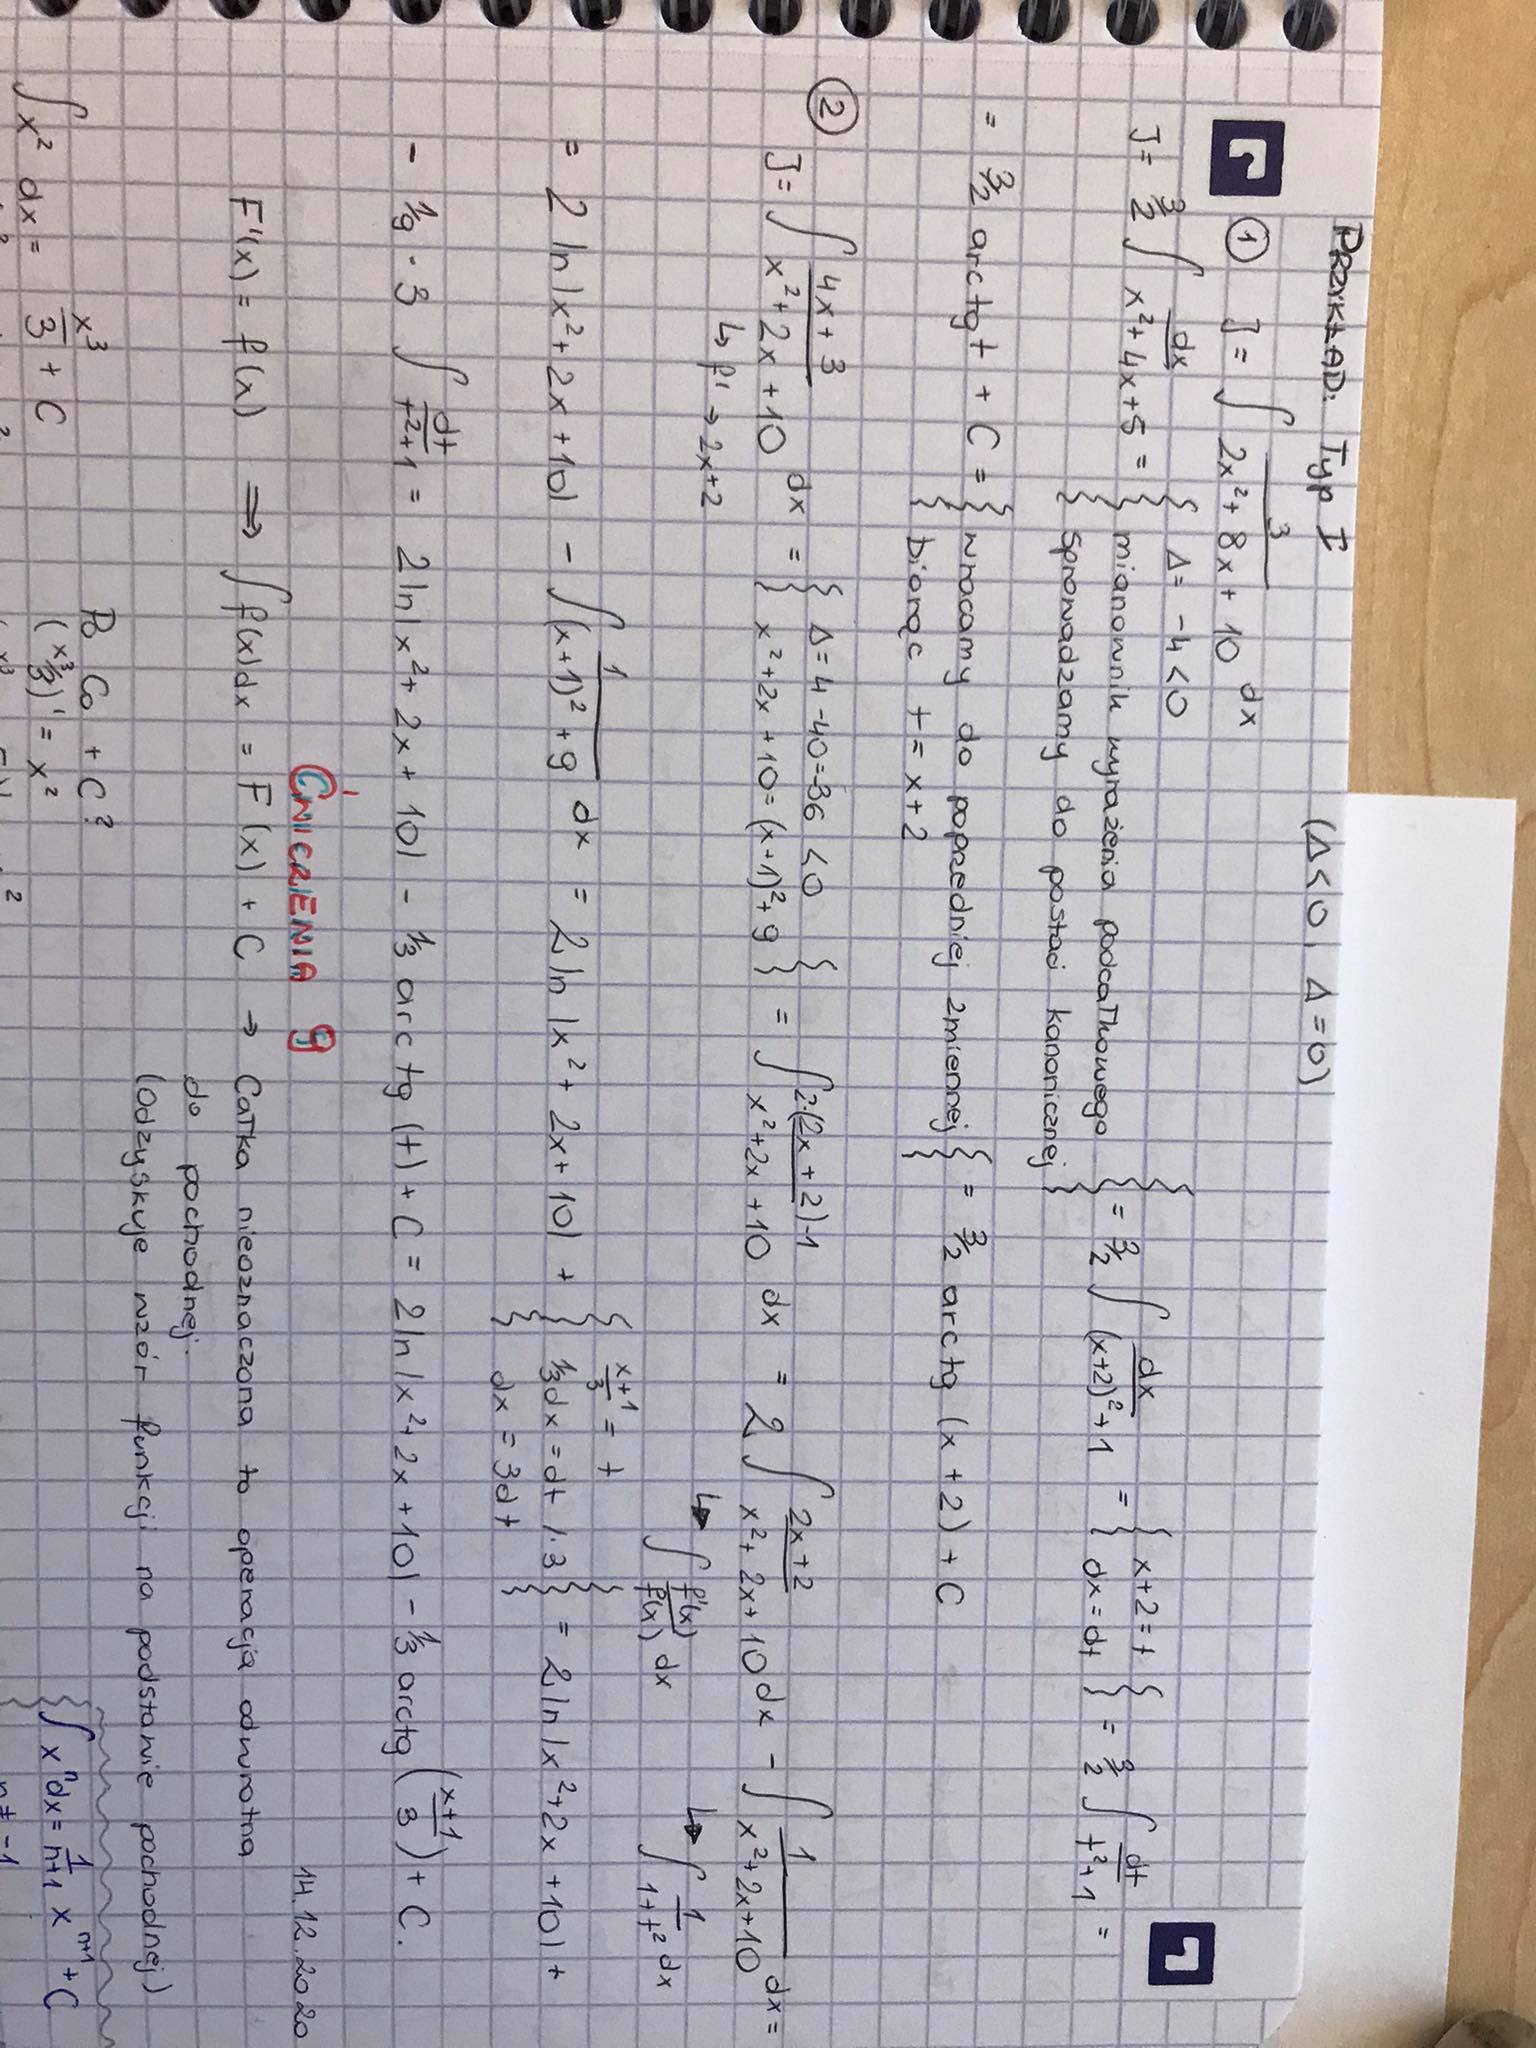 PRZYKŁAD: Typ I (Δ<0, Δ=0)
① J = ∫ 3/(2x²+8x+10) dx
J = 3/2 ∫ dx/(x²+4x+5) = { Δ = -4<0 mianownik wyrażenia podcałkowego sprowadzamy do postaci kanonicznej } = 3/2 ∫ dx/((x+2)²+1) = { x+2=t dx=dt } = 3/2 ∫ dt/(t²+1) =
= 3/2 arctg t + C = { wracamy do poprzedniej zmiennej biorąc t = x+2 } = 3/2 arctg (x+2) + C
② J = ∫ (4x+3)/(x²+2x+10) dx = { Δ=4-40=-36<0 x²+2x+10=(x+1)²+9 } = ∫ (2·(2x+2)-1)/(x²+2x+10) dx = 2 ∫ (2x+2)/(x²+2x+10) dx - ∫ 1/(x²+2x+10) dx =
↳ f' → 2x+2 ↳ ∫ f'(x)/f(x) dx ↳ ∫ 1/(1+t²) dx
= 2 ln |x²+2x+10| - ∫ 1/((x+1)²+9) dx = 2 ln |x²+2x+10| + { (x+1)/3 = t 1/3 dx = dt /·3 dx = 3dt } = 2 ln |x²+2x+10| +
- 1/9 · 3 ∫ dt/(t²+1) = 2 ln |x²+2x+10| - 1/3 arctg (t) + C = 2 ln |x²+2x+10| - 1/3 arctg ((x+1)/3) + C.
ĆWICZENIA 9 14.12.2020
F'(x) = f(x) ⟹ ∫ f(x)dx = F(x) + C → Całka nieoznaczona to operacja odwrotna
do pochodnej.
(Odzyskuje wzór funkcji na podstawie pochodnej)
∫ x² dx = x³/3 + C
Po Co + C?
(x³/3)' = x²
∫ xⁿdx = 1/(n+1) xⁿ⁺¹ + C
n ≠ -1